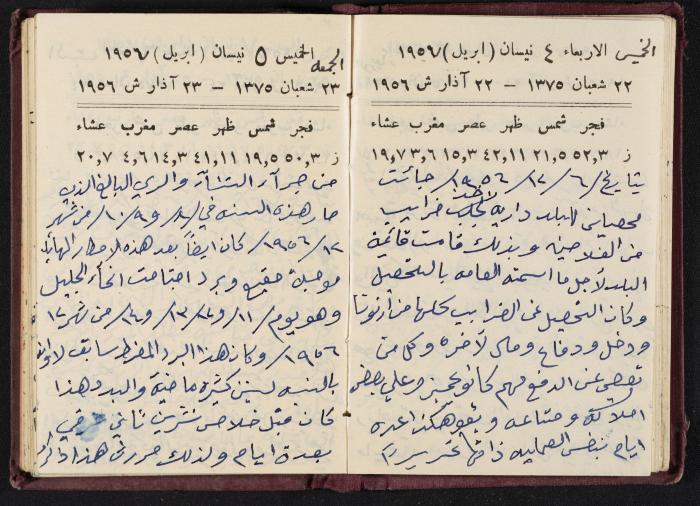 الخميس الاربعاء ٤ نيسان (ابريل) ١٩٥٦
٢٢ شعبان ١٣٧٥ – ٢٢ آذار ش ١٩٥٦
فجر شمس ظهر عصر مغرب عشاء
ز ٥٢,٣ ٢١,٥ ٤٢,١١ ١٥,٣ ٣,٦ ١٩,٧
بتاريخ /٦/ /١٢/ ١٩٥٦/ جائت
محصيلن للبلد دارية لاجل جلب ضرايب
من الفلاحين وبذلك قامت قائمة
البلد لاجل ما اسمته العامه بالتحصيل
وكان التحصيل عن الضرايب كلها من ارنونا
ودخل ودفاع ومال لآخره وكل من
تعصى عن الدفع لهم كانو يحجزو على بعض
املاكه ومتاعه وبقو هكذا عدة
ايام بنفس العمليه ذاتها
الجمعه الخميس ٥ نيسان (ابريل) ١٩٥٦
٢٣ شعبان ١٣٧٥ – ٢٣ آذار ش ١٩٥٦
فجر شمس ظهر عصر مغرب عشاء
ز ٥٠,٣ ١٩,٥ ٤١,١١ ١٤,٣ ٤,٦ ٢٠,٧
من جرآء الشتآء والري البالغ الذي
صار هذه السنه في /٨/ و٩/ و١٠/ من شهر
١٢/ ١٩٥٦/ كان ايضاً بعد هذه الامطار الهائله
موجة صقيع وبرد اجتاحت انحاء الجليل
وهو يوم /١١/ و١٢/ و١٣/ و١٤/ من شهر ١٢
١٩٥٦/ وكان هذا البرد المفرط سابق لاوانه
بالنسبه لسنين كثيرة ماضية والبرد هذا
كان قبل خلاص تشرين ثاني شرقي
بعدة ايام ولذلك حررت هذا ذكر